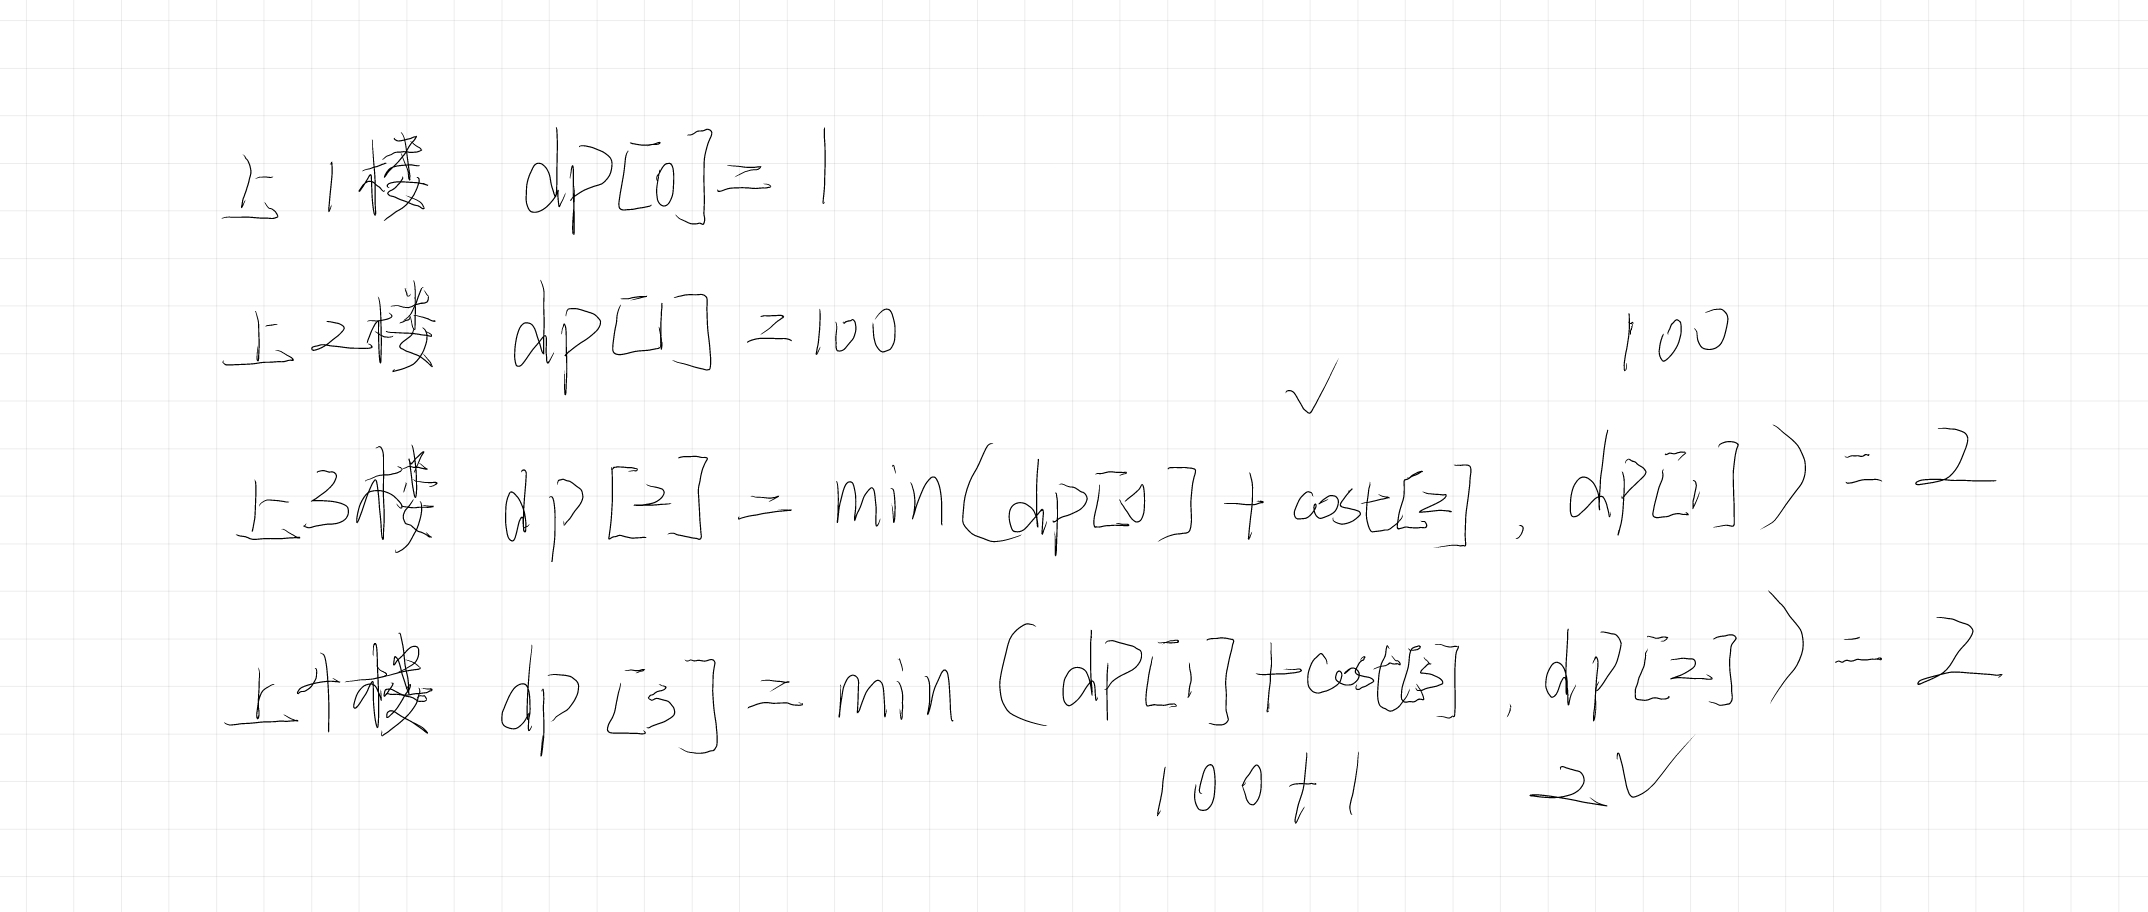 上1楼 dp[0]=1
上2楼 dp[1]=100
100
✓
上3楼 dp[2]=min(dp[0]+cost[2], dp[1])=2
上4楼 dp[3]=min(dp[1]+cost[3], dp[2])=2
100+1 2✓